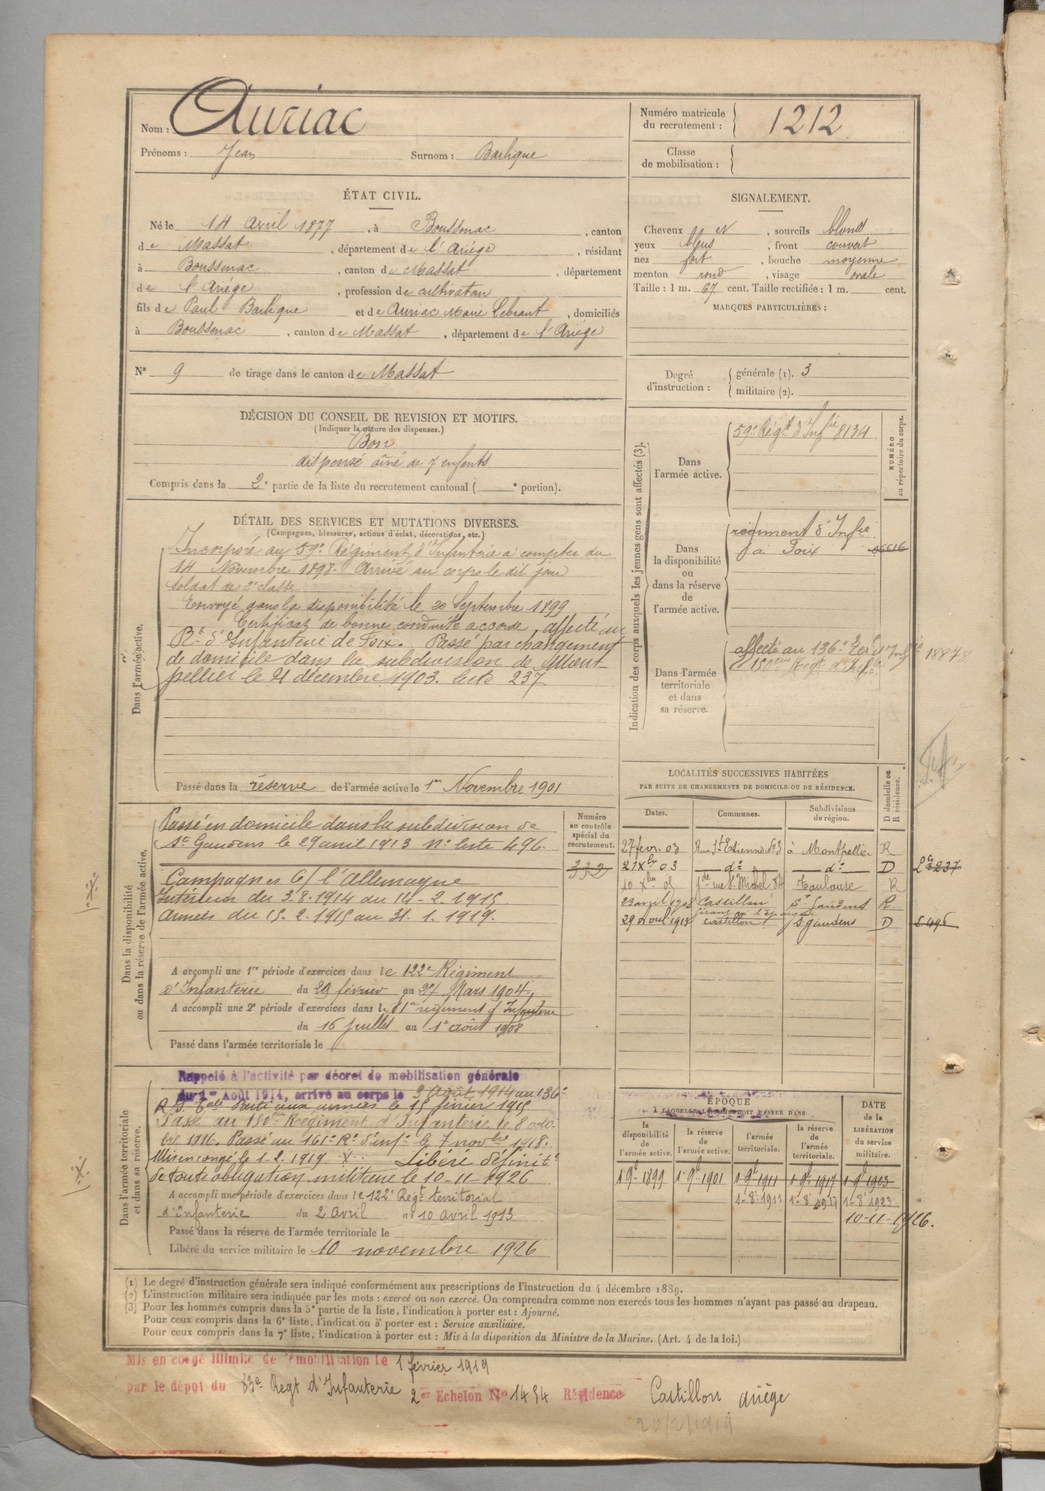 Nom : Auriac
Prénoms : Jean Surnom : Barlique
Numéro matricule du recrutement : 1212
Classe de mobilisation :
ÉTAT CIVIL.
Né le 14 Avril 1877, à Boussenac, canton
de Massat, département de l'Ariège, résidant
à Boussenac, canton de Massat, département
de l'Ariège, profession de cultivateur
fils de Paul Barlique et de Auriac Marie, domiciliés
à Boussenac, canton de Massat, département de l'Ariège
N° 9 de tirage dans le canton de Massat
SIGNALEMENT.
Cheveux et, sourcils blond
yeux bleus, front couvert
nez fort, bouche moyenne
menton rond, visage ovale
Taille : 1 m. 67 cent. Taille rectifiée : 1 m. cent.
MARQUES PARTICULIÈRES :
Degré d'instruction : générale (1). 3
militaire (2).
DÉCISION DU CONSEIL DE REVISION ET MOTIFS.
(Indiquer la nature des dispenses.)
Bon
dispensé aîné de 7 enfants
Compris dans la 2e partie de la liste du recrutement cantonal ( e portion).
DÉTAIL DES SERVICES ET MUTATIONS DIVERSES.
(Campagnes, blessures, actions d'éclat, décorations, etc.)
Dans l'armée active.
Incorporé au 59e Régiment d'Infanterie à compter du
14 Novembre 1898. Arrivé au corps le dit jour
soldat de 2e classe
Envoyé dans la disponibilité le 20 Septembre 1899
Certificat de bonne conduite accordé, affecté au
Rt d'Infanterie de Foix. Passé par changement
de domicile dans la subdivision de Mont
pellier le 21 décembre 1903. Liste 237
Passé dans la réserve de l'armée active le 1er Novembre 1901
Indication des corps auxquels les jeunes gens sont affectés (3).
NUMÉRO au répertoire du corps.
Dans l'armée active.
59e Régt d'Infie 8134
Dans la disponibilité ou dans la réserve de l'armée active.
régiment d'Infie
à Foix
Dans l'armée territoriale et dans sa réserve.
affecté au 136e
LOCALITÉS SUCCESSIVES HABITÉES
PAR SUITE DE CHANGEMENTS DE DOMICILE OU DE RÉSIDENCE.
Dates. Communes. Subdivisions de région. D domicile ou R résidence.
27 févr. 03 Rue St Etienne à Montpellier R
21 Xbre 03 do do D Le 237
10 Xbre 05 rue St Michel Toulouse R
Castillon St Gaudens R
29 avril 1913 Castillon St gaudens D
Dans la disponibilité ou dans la réserve de l'armée active.
Numéro au contrôle spécial du recrutement.
332
Passé en domicile dans la subdivision de
St Gaudens le 29 avril 1913 No liste 496.
Campagnes C/ l'Allemagne
Intérieur du 3.8.1914 au 14-2.1915.
Armées du 15.2.1915 au 31.1.1919.
A accompli une 1re période d'exercices dans le 122e Régiment
d'Infanterie du 29 février au 27 Mars 1904,
A accompli une 2e période d'exercices dans le 81e régiment d'Infanterie
du 16 juillet au 1er août 1908
Passé dans l'armée territoriale le
Dans l'armée territoriale et dans sa réserve.
Rappelé à l'activité par décret de mobilisation générale
du 1er Août 1914, arrivé au corps le 3 Août 1914 au 136e
R. I. Tale Parti aux armées le 15 février 1915
Passé au Régiment d'Infanterie le 8 octo
bre 1916. Passé au 161e Rt d'infie le 7 novbre 1918.
Mis en congé le 1.2.1919 X. Libéré définitt
de toute obligation militaire le 10-11-1926
A accompli une période d'exercices dans le 122e Régt territorial
d'Infanterie du 2 avril au 10 avril 1913
Passé dans la réserve de l'armée territoriale le
Libéré du service militaire le 10 novembre 1926
ÉPOQUE
la disponibilité de l'armée active. la réserve de l'armée active. l'armée territoriale. la réserve de l'armée territoriale.
DATE de la LIBÉRATION du service militaire.
1 9bre 1899 1 9bre 1901 1 9bre 1911 1 9bre 1917 1 9bre 1923
1er 8bre 1911 1er 8bre 1917 1er 8bre 1923
10-11-1926.
(1) Le degré d'instruction générale sera indiqué conformément aux prescriptions de l'instruction du 4 décembre 1889.
(2) L'instruction militaire sera indiquée par les mots : exercé ou non exercé. On comprendra comme non exercés tous les hommes n'ayant pas passé au drapeau.
(3) Pour les hommes compris dans la 5e partie de la liste, l'indication à porter est : Ajourné.
Pour ceux compris dans la 6e liste, l'indication à porter est : Service auxiliaire.
Pour ceux compris dans la 7e liste, l'indication à porter est : Mis à la disposition du Ministre de la Marine. (Art. 4 de la loi.)
Mis en congé illimité de démobilisation le 1 février 1919
par le dépôt du Regt d'Infanterie 2er Echelon No 1434 Résidence Castillon Ariège
20/2/1919